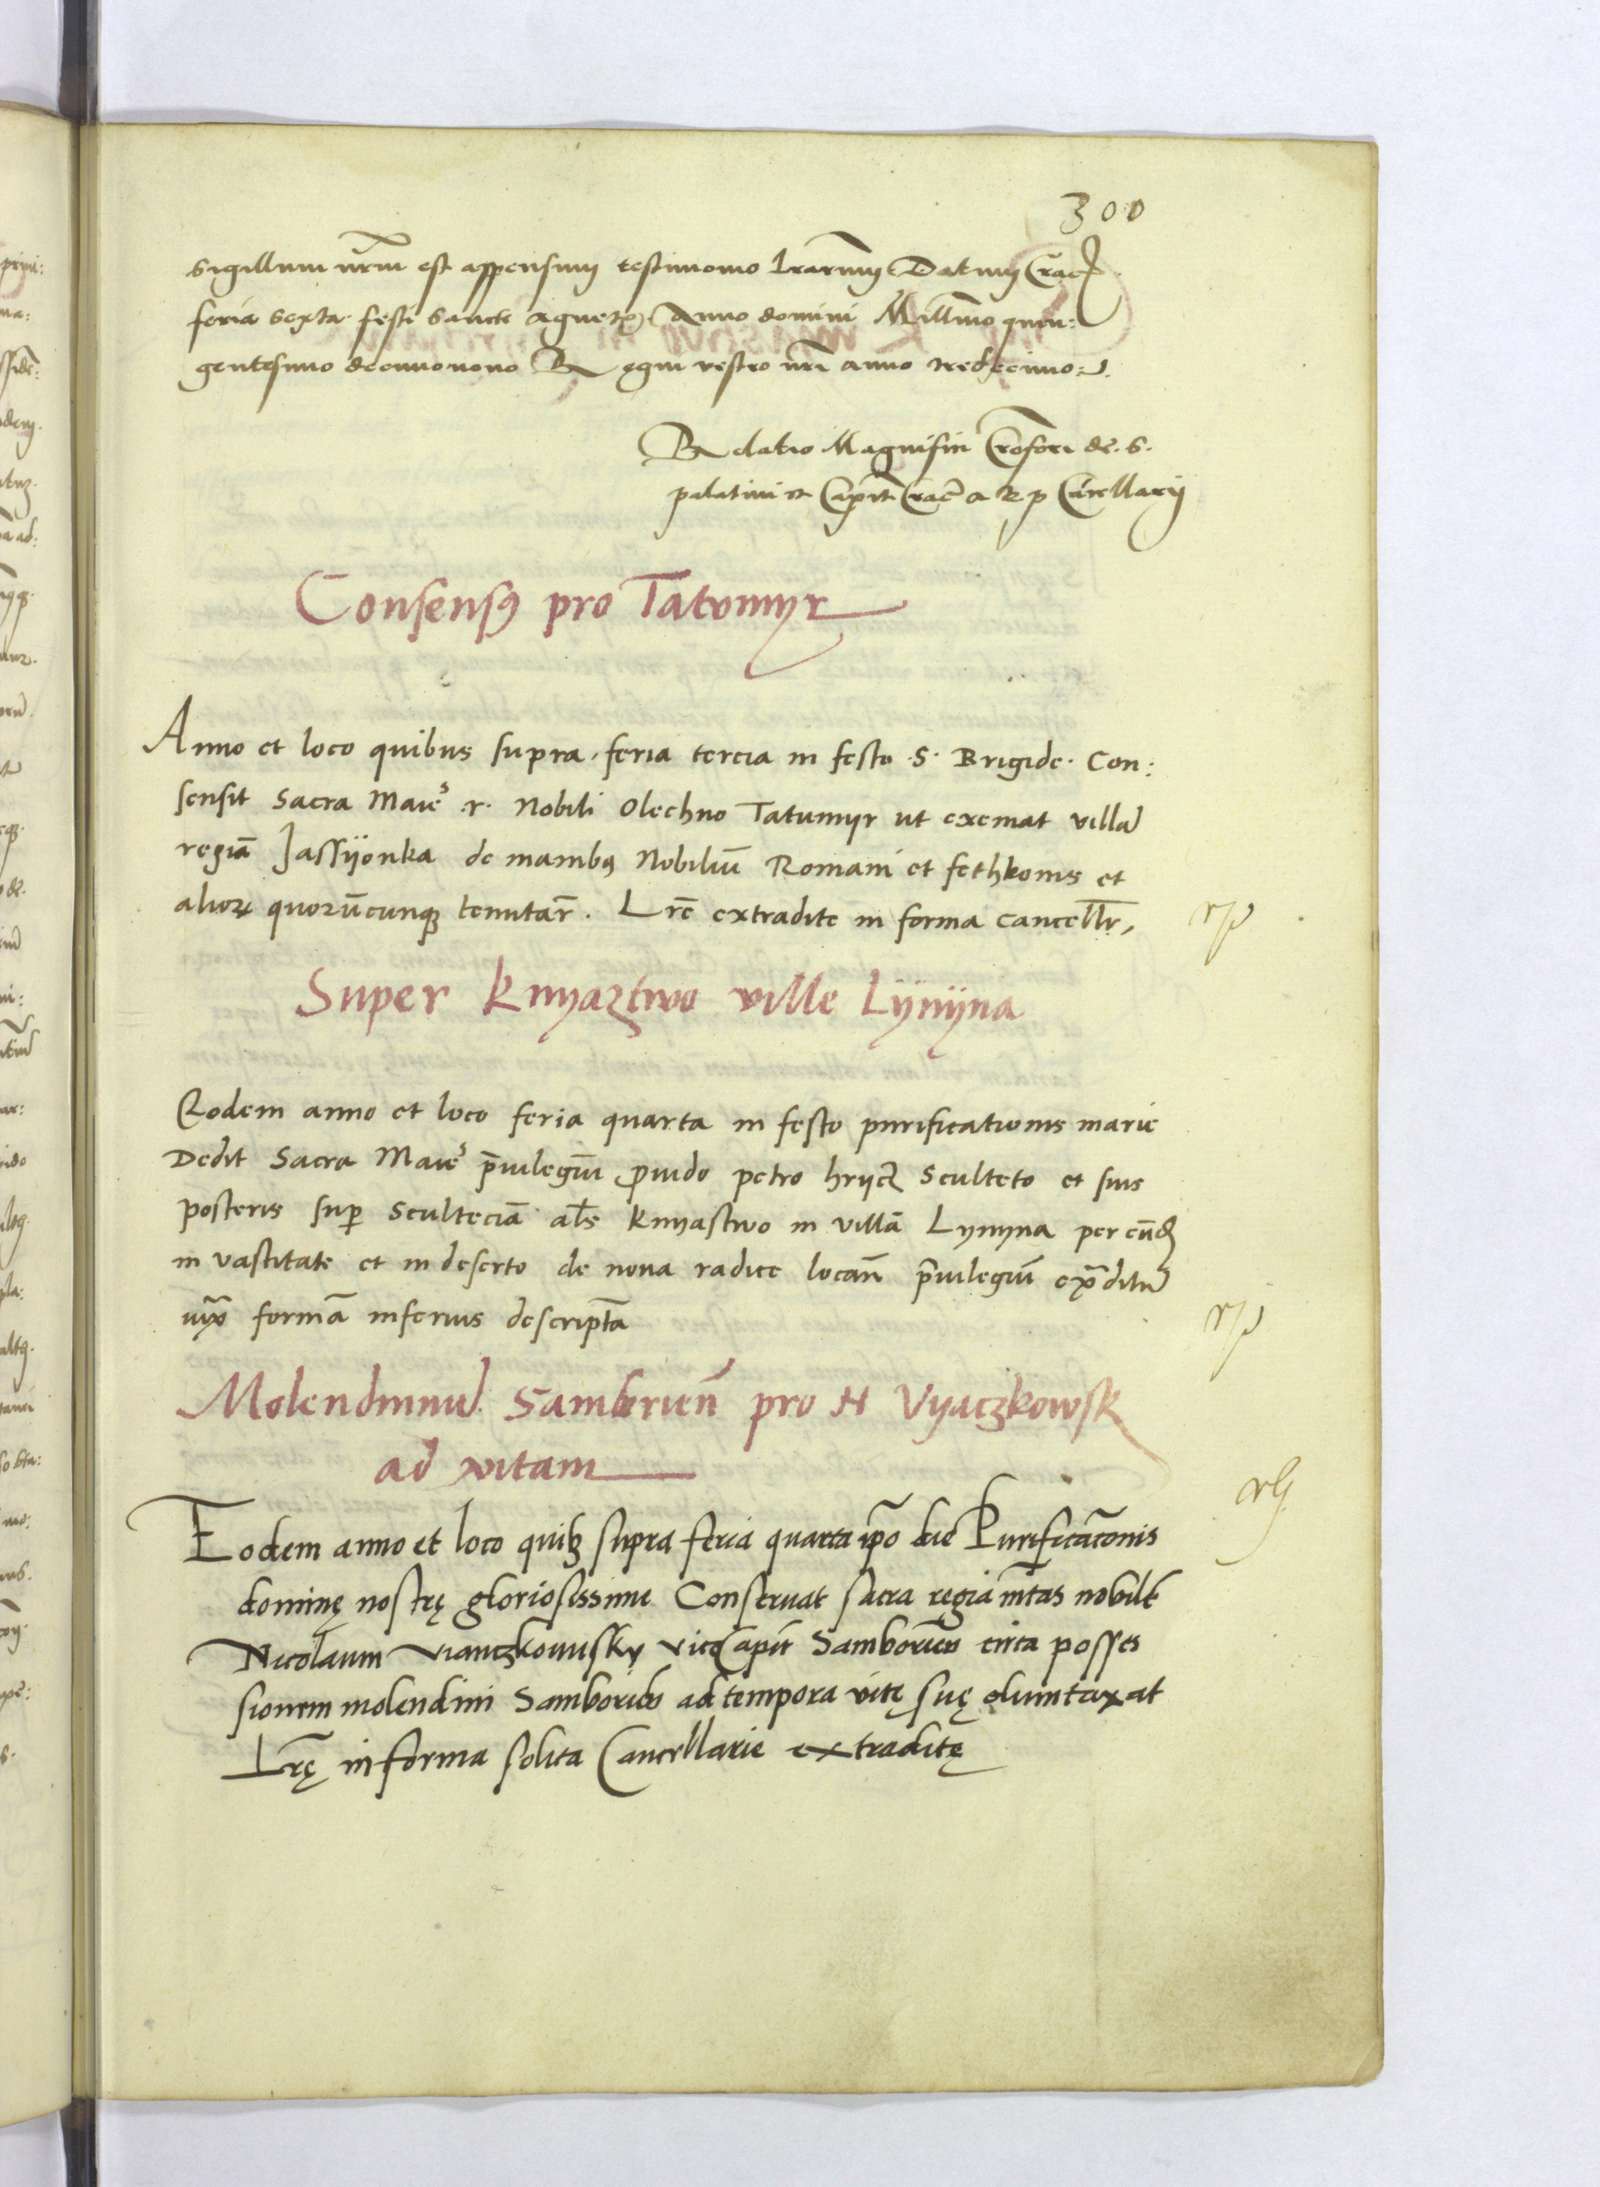 300
Sigillum nrm̄ est appensum testimonio lrarum Datum Crac
feria sexta festi Sancte Agnetis Anno domini Millīmo quin:
gentesimo decimonono Regni vestro nrī anno tredecimo
Relatio Magnifici Crosfori de. S.
palatini et Capit Crac̄ a R p Cancellarij
Consensꝯ pro Tatomyr
Anno et loco quibus supra. feria tercia in festo .S. Brigide. Con:
sensit Sacra Maiēs .r. Nobili Olechno Tatumyr ut exemat villā
regiā Jassÿonka de manibꝯ Nobiliū Romani et fethkonis et
alioꝝ quorūcunqꝫ tenutar̄. Lrē extradite in forma cancellr̄,
rp
Super knyaztwo ville Lÿnÿna
Eodem anno et loco feria quarta in festo purificationis marie
Dedit Sacra Maiēs p̄uilegiū ꝓuido petro hrijcz Sculteto et suis
posteris suꝑ Sculteciā als̄ knyastwo in villā Lynyna per eūdē
in vastitate et in deserto de noua radice locan̄ p̄uilegiū exᵃditū
iuxᵃ formā inferius descriptā
rp
Molendinū Samborien̄ pro N Vyaczkowsk
ad vitam
rg
Eodem anno et loco quibꝫ supra feria quarta ip̄o die Purificac̄onis
dominę nostrę gloriosissime Conseruat sacra regia mt̄as nobilē
Nicolaum Vianczkouusky viceCapit̄ Samborien̄ circa posses
sionem molendini Samborien̄ ad tempora vitę suę duntaxat
Lrę̄ in forma solita Cancellarie extraditę